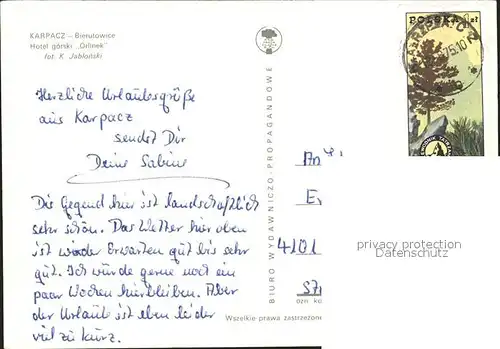 KARPACZ — Bierutowice
Hotel górski „Orlinek"
fot. K. Jabłoński
POLSKA 1 zł
KARPACZ 2
75.10
Herzliche Urlaubsgrüße
aus Karpacz
sendet Dir
Deine Sabine
Die Gegend hier ist landschaftlich
sehr schön. Das Wetter hier oben
ist wider Erwarten gut bis sehr
gut. Ich würde gerne noch ein
paar Wochen hierbleiben. Aber
der Urlaub ist eben leider
viel zu kurz.
BIURO WYDAWNICZO-PROPAGANDOWE
4101
privacy protection
Datenschutz
Wszelkie prawa zastrzeżone